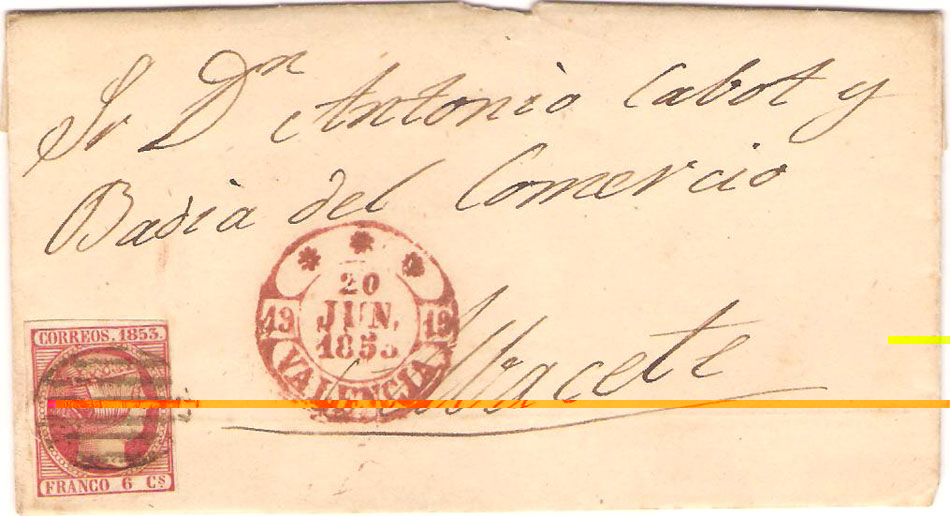 Sr Dn Antonio Cabot y
Badia del Comercio
Albacete
20
JUN.
1853
19 19
VALENCIA
CORREOS. 1853.
FRANCO 6 Cs